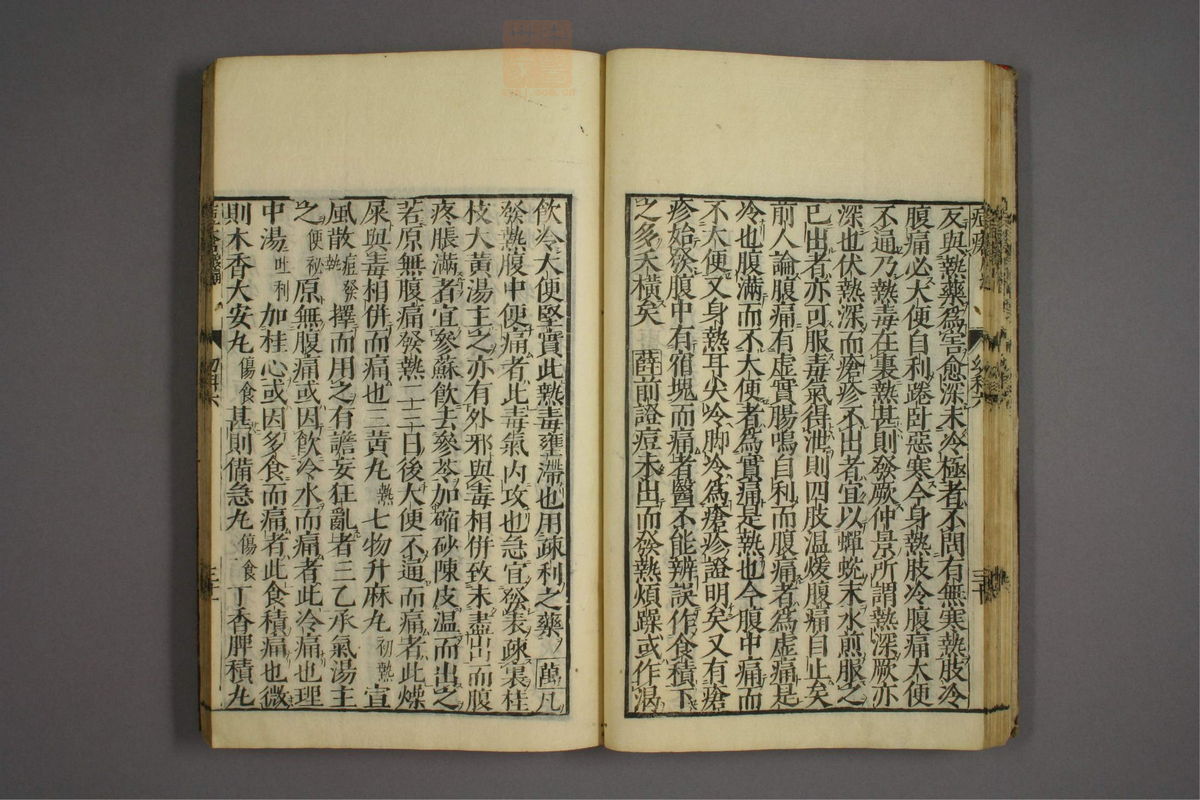 反與熱藥爲害愈深末冷極者不問有無寒熱肢冷
腹痛必大便自利踡臥惡寒今身熱肢冷腹痛大便
不通乃熱毒在裏熱甚則發厥仲景所謂熱深厥亦
深也伏熱深而瘡疹不出者宜以蟬蛻末水煎服之
已出者亦可服毒氣得泄則四肢温煖腹痛自止矣
前人論腹痛有虚實腸鳴自利而腹痛者爲虚痛是
冷也腹滿而不大便者爲實痛是熱也今腹中痛而
不大便又身熱耳尖冷脚冷爲瘡疹證明矣又有瘡
疹始發腹中有宿塊而痛者醫不能辨誤作食積下
之多夭橫矣 薛前證痘未出而發熱煩躁或作渴
飲冷大便堅實此熱毒壅滯也用疎利之藥 萬凡
發熱腹中便痛者此毒氣内攻也急宜發表疎裏桂
枝大黃湯主之亦有外邪與毒相併致未盡出而腹
疼脹滿者宜參蘇飲去參苓加縮砂陳皮温而出之
若原無腹痛發熱一二三日後大便不通而痛者此燥
屎與毒相併而痛也三黃丸熱七物升麻丸初熱宣
風散痘發熱擇而用之有譫妄狂亂者三乙承氣湯主
之便秘原無腹痛或因飲冷水而痛者此冷痛也理
中湯吐利加桂心或因多食而痛者此食積痛也微
則木香大安丸傷食甚則備急丸傷食丁香脾積丸